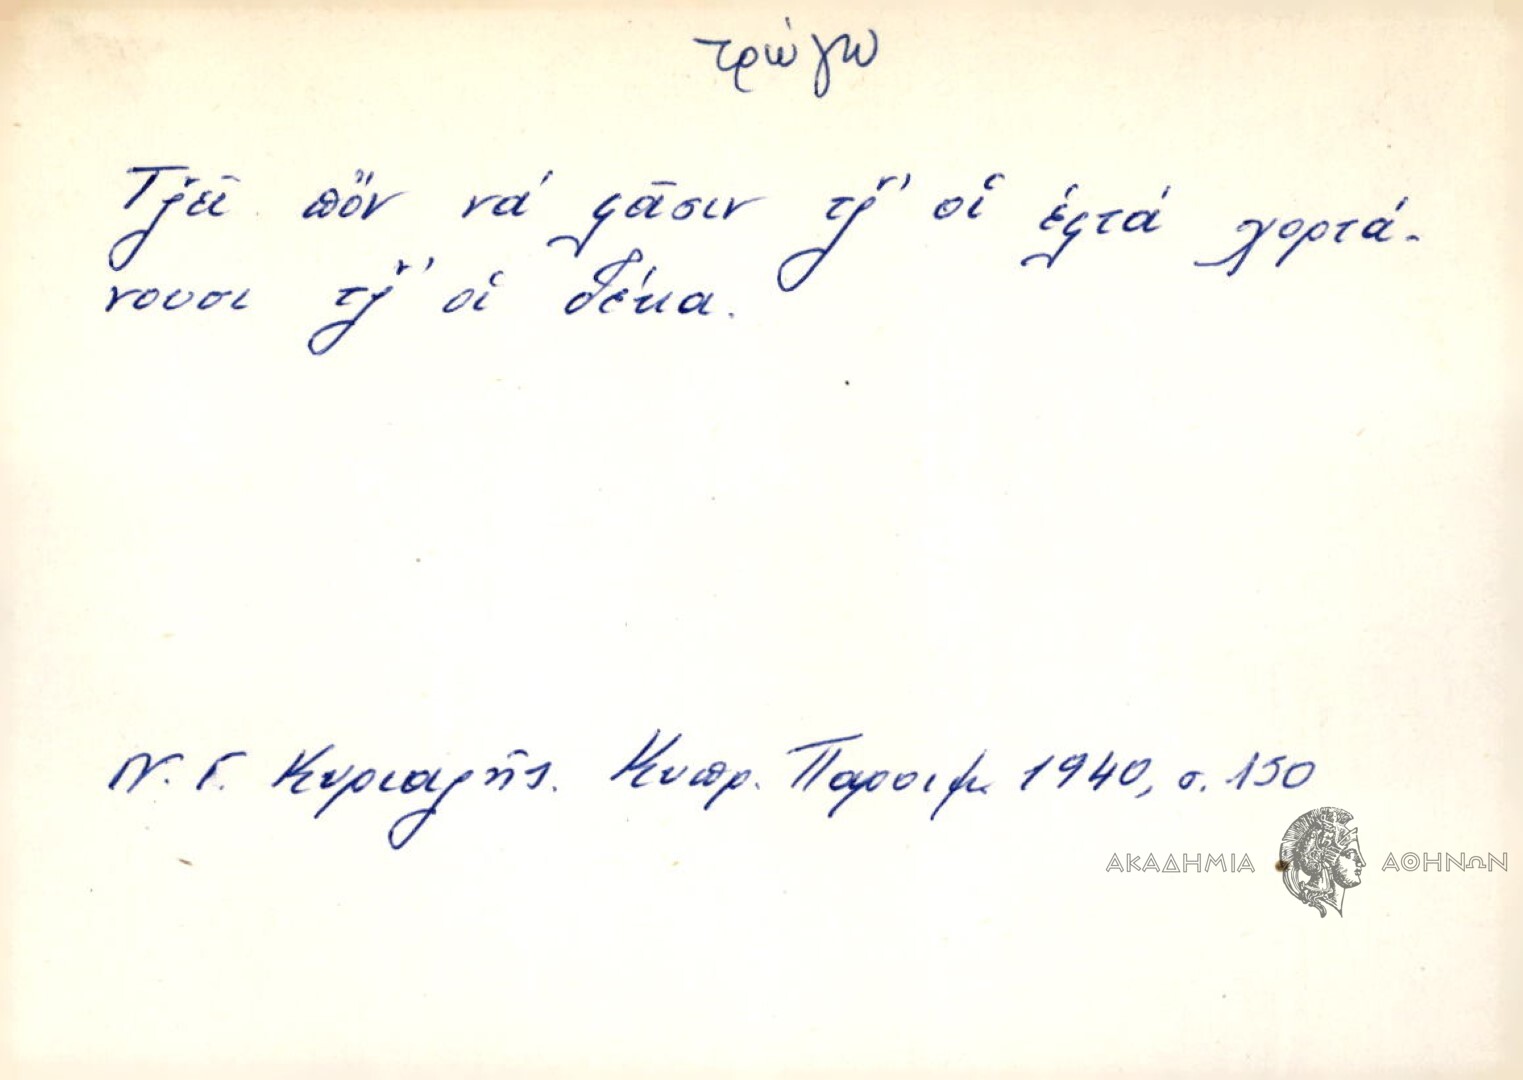 τρώγω
Τζ̌εῖ πὄν νά φᾶσιν τζ̌' οἱ ἑφτά χορτά-
νουσι τζ̌' οἱ δέκα.
Ν. Γ. Κυριαζῆς. Κυπρ. Παροιμ. 1940, σ. 150
ΑΚΑΔΗΜΙΑ ΑΘΗΝΩΝ